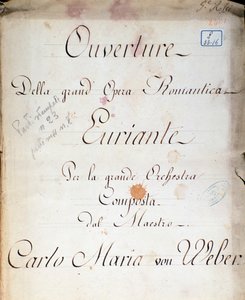 Ouverture
Della grand Opera Romantica
Euriante
Per la grande Orchestra
Composta
dal Maestro
Carlo Maria von Weber